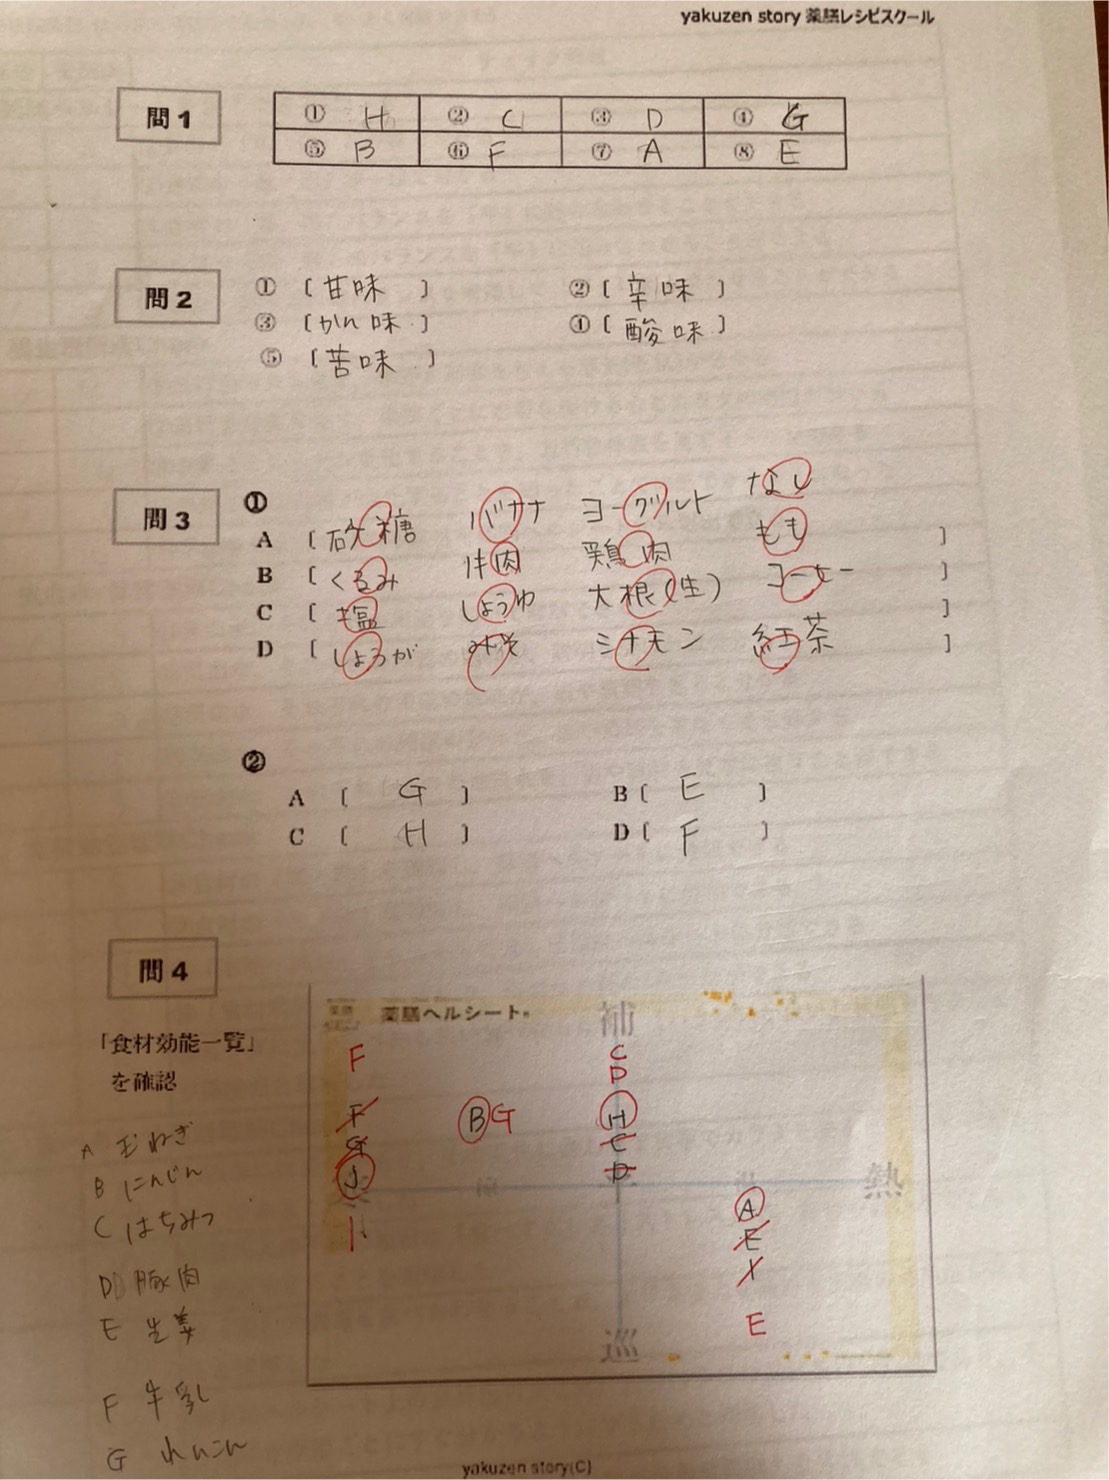 yakuzen story 薬膳レシピスクール
問1
① H ② C ③ D ④ G
⑤ B ⑥ F ⑦ A ⑧ E
問2
① 〔甘味 〕 ②〔 辛味 〕
③ 〔かん味 〕 ④〔 酸味 〕
⑤ 〔苦味 〕
問3
①
A 〔砂糖 バナナ ヨーグルト なし 〕
B 〔くるみ 牛肉 鶏肉 もも 〕
C 〔塩 しょうゆ 大根(生) コーヒー 〕
D 〔しょうが みそ シナモン 紅茶 〕
②
A 〔 G 〕 B〔 E 〕
C 〔 H 〕 D〔 F 〕
問4
「食材効能一覧」
を確認
薬膳ヘルシート®
補
F
C
D
F
B G
H
G
C
J
D
熱
I
A
E
I
E
巡
A 玉ねぎ
B にんじん
C はちみつ
D 豚肉
E 生姜
F 牛乳
G れんこん
yakuzen story(C)